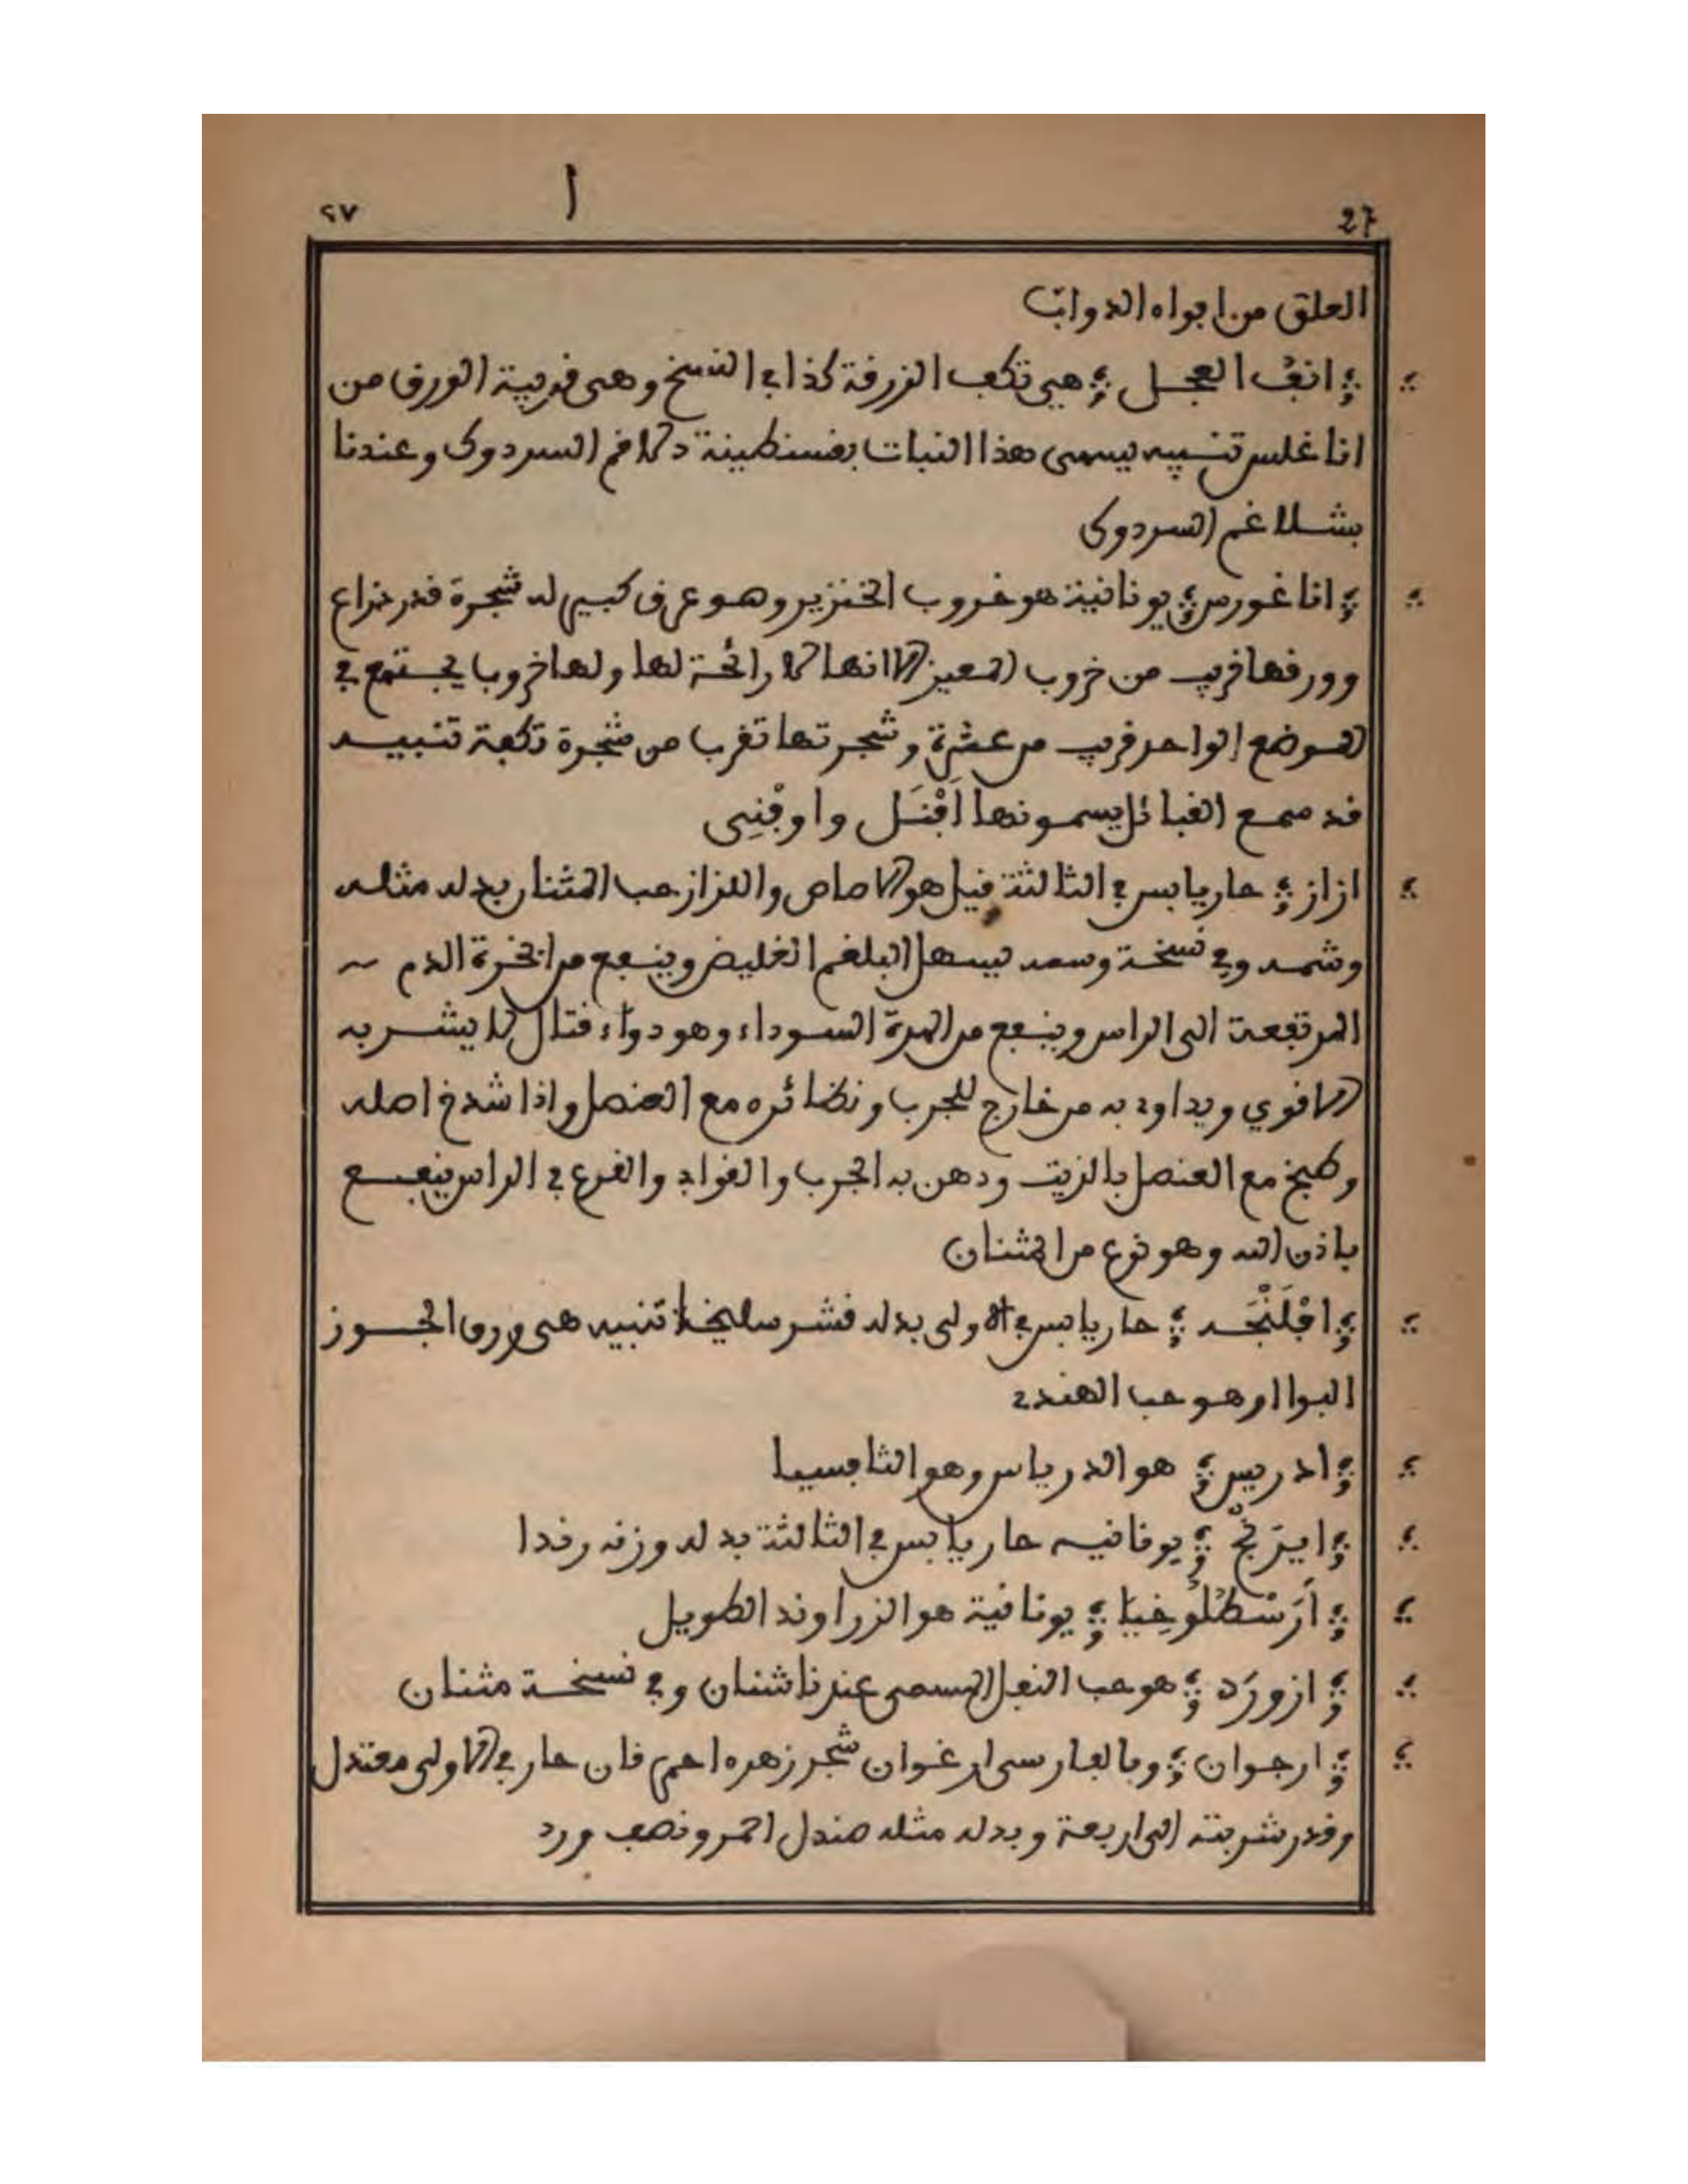 ٢٧ ا 27
العلق من افواه الدواب
انف العجل هي تكف الزرقة كذا في النسخ وهي قريبة الورق من
اناغلس تنبيه يسمى هذا النبات بقسنطينة دلاغم السردوك وعندنا
بشلاغم السردوك
اناغورس يونانية هو خروب الخنزير وهو عرق كبير له شجرة قدر ذراع
وورقها قريب من خروب المعيز الا انها لا رائحة لها ولها خروبا يجتمع في
الموضع الواحد قريب من عشرة وشجرتها تقرب من شجرة تكفة تنبيه
قد سمع القبائل يسمونها اَفْنَل واوفْنِي
ازاز حار يابس في الثالثة قيل هو الاصاص والازاز حب المثنان بدله مثله
وشمه وفي نسخة وسمه يسهل البلغم الغليض وينفع من ابخرة الدم
المرتفعة الى الراس وينفع من المرة السوداء وهو دواء قتال لا يشربه
الا قوي ويداوى به من خارج للجرب ونظائره مع العنصل واذا شدخ اصله
وطبخ مع العنصل بالزيت ودهن به الجرب والقوابي والقرع في الراس ينفع
باذن الله وهو نوع من المثنان
افْلَنْجَه حار يابس في الاولى بدله قشر سليخة تنبيه هي ورق الجوز
البوا او هو حب الهندي
ادريس هو الدرياس وهو الثافسيا
ايرَنج يونانيه حار يابس في الثالثة بدله وزنه رفدا
اَرَسْطُلُوخِيَا يونانية هو الزراوند الطويل
ازورَد هو حب النفل المسمى عندنا شنان وفي نسخة مثنان
ارجوان وبالفارسي ارغوان شجر زهره احمر قان حار في الاولى معتدل
وقدر شربته الى اربعة وبدله مثله صندل احمر ونصف ورد